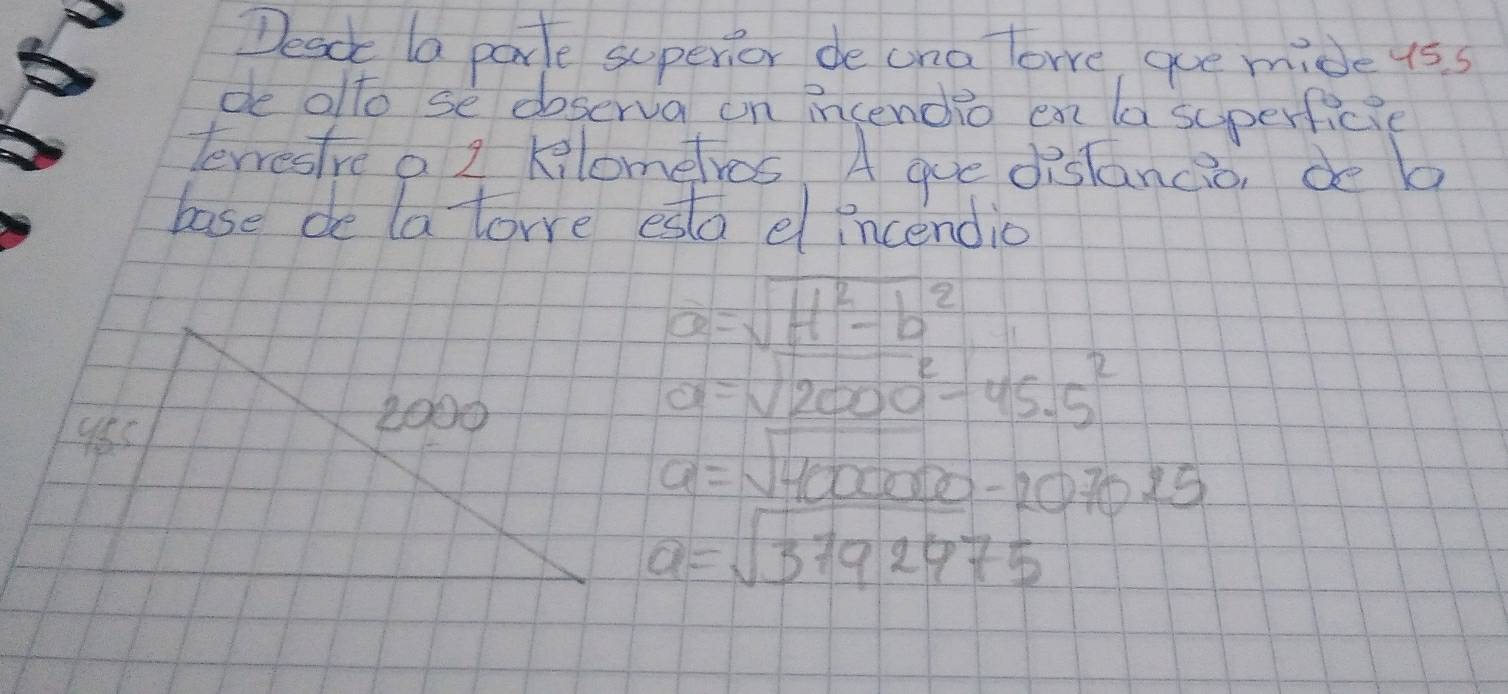 Desde la parte superior de una Torre, que mide 45.5
de alto se observa un incendio en la superficie
Terrestre a 2 Kilometros, A que distancia, de la
base de la torre esta el incendio
a=√H²-b²
2000
a=√2000²-45.5²
455
a=√4000000-207025
a=√3792975